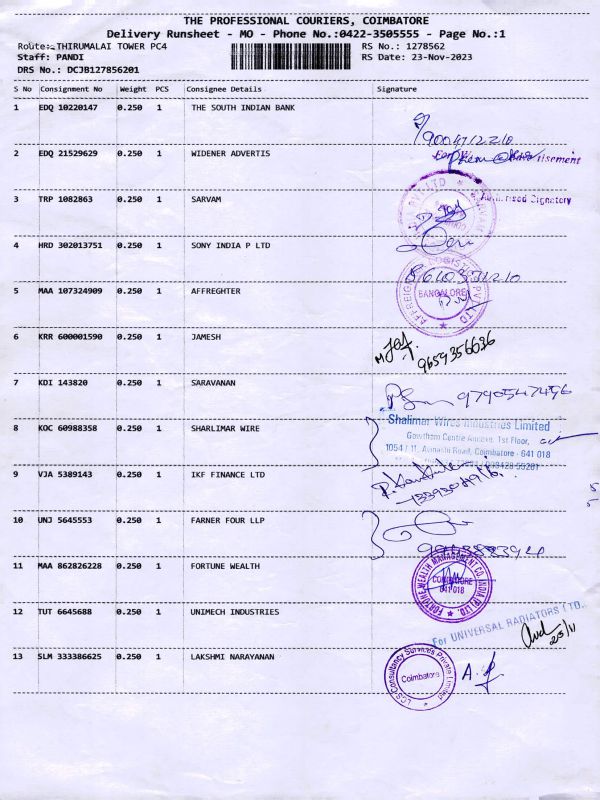 THE PROFESSIONAL COURIERS, COIMBATORE
Delivery Runsheet - MO - Phone No.:0422-3505555 - Page No.:1
Route:-THIRUMALAI TOWER PC4 RS No.: 1278562
Staff: PANDI RS Date: 23-Nov-2023
DRS No.: DCJB127856201
S No Consignment No Weight PCS Consignee Details Signature
1 EDQ 10220147 0.250 1 THE SOUTH INDIAN BANK
2 EDQ 21529629 0.250 1 WIDENER ADVERTIS
3 TRP 1082863 0.250 1 SARVAM
Authorised Signatory
4 HRD 302013751 0.250 1 SONY INDIA P LTD
5 MAA 107324909 0.250 1 AFFREGHTER
BANGALORE
6 KRR 600001590 0.250 1 JAMESH
9659356636
7 KDI 143820 0.250 1 SARAVANAN
9790547496
8 KOC 60988358 0.250 1 SHARLIMAR WIRE
Shalimar Wires Industries Limited
Gowtham Centre Annexe, 1st Floor,
1054 / 11, Avinashi Road, Coimbatore - 641 018
9 VJA 5389143 0.250 1 IKF FINANCE LTD
10 UNJ 5645553 0.250 1 FARNER FOUR LLP
11 MAA 862826228 0.250 1 FORTUNE WEALTH
FORTUNE WEALTH MANAGEMENT CO. INDIA (P) LTD
COIMBATORE
641 018
12 TUT 6645688 0.250 1 UNIMECH INDUSTRIES
For UNIVERSAL RADIATORS LTD.,
13 SLM 333386625 0.250 1 LAKSHMI NARAYANAN
LCS Consultancy Services Private Limited
Coimbatore